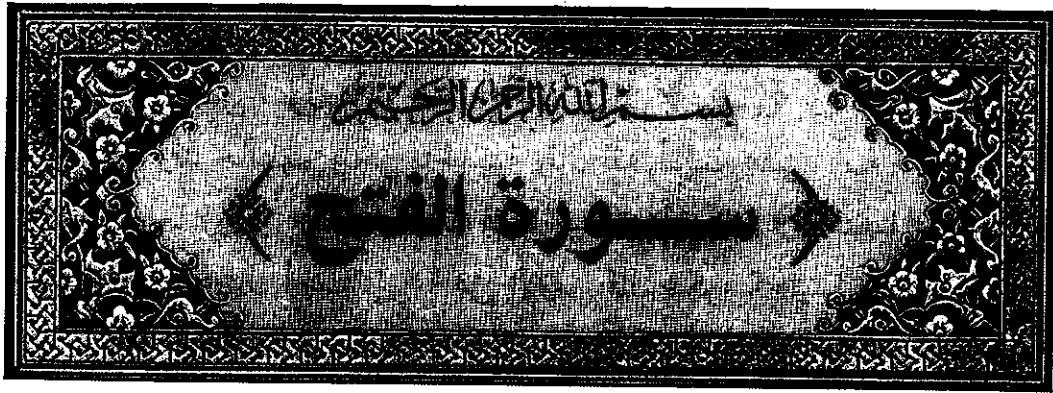 بسم الله الرحمن الرحيم
﴿ ســـورة الفتح ﴾